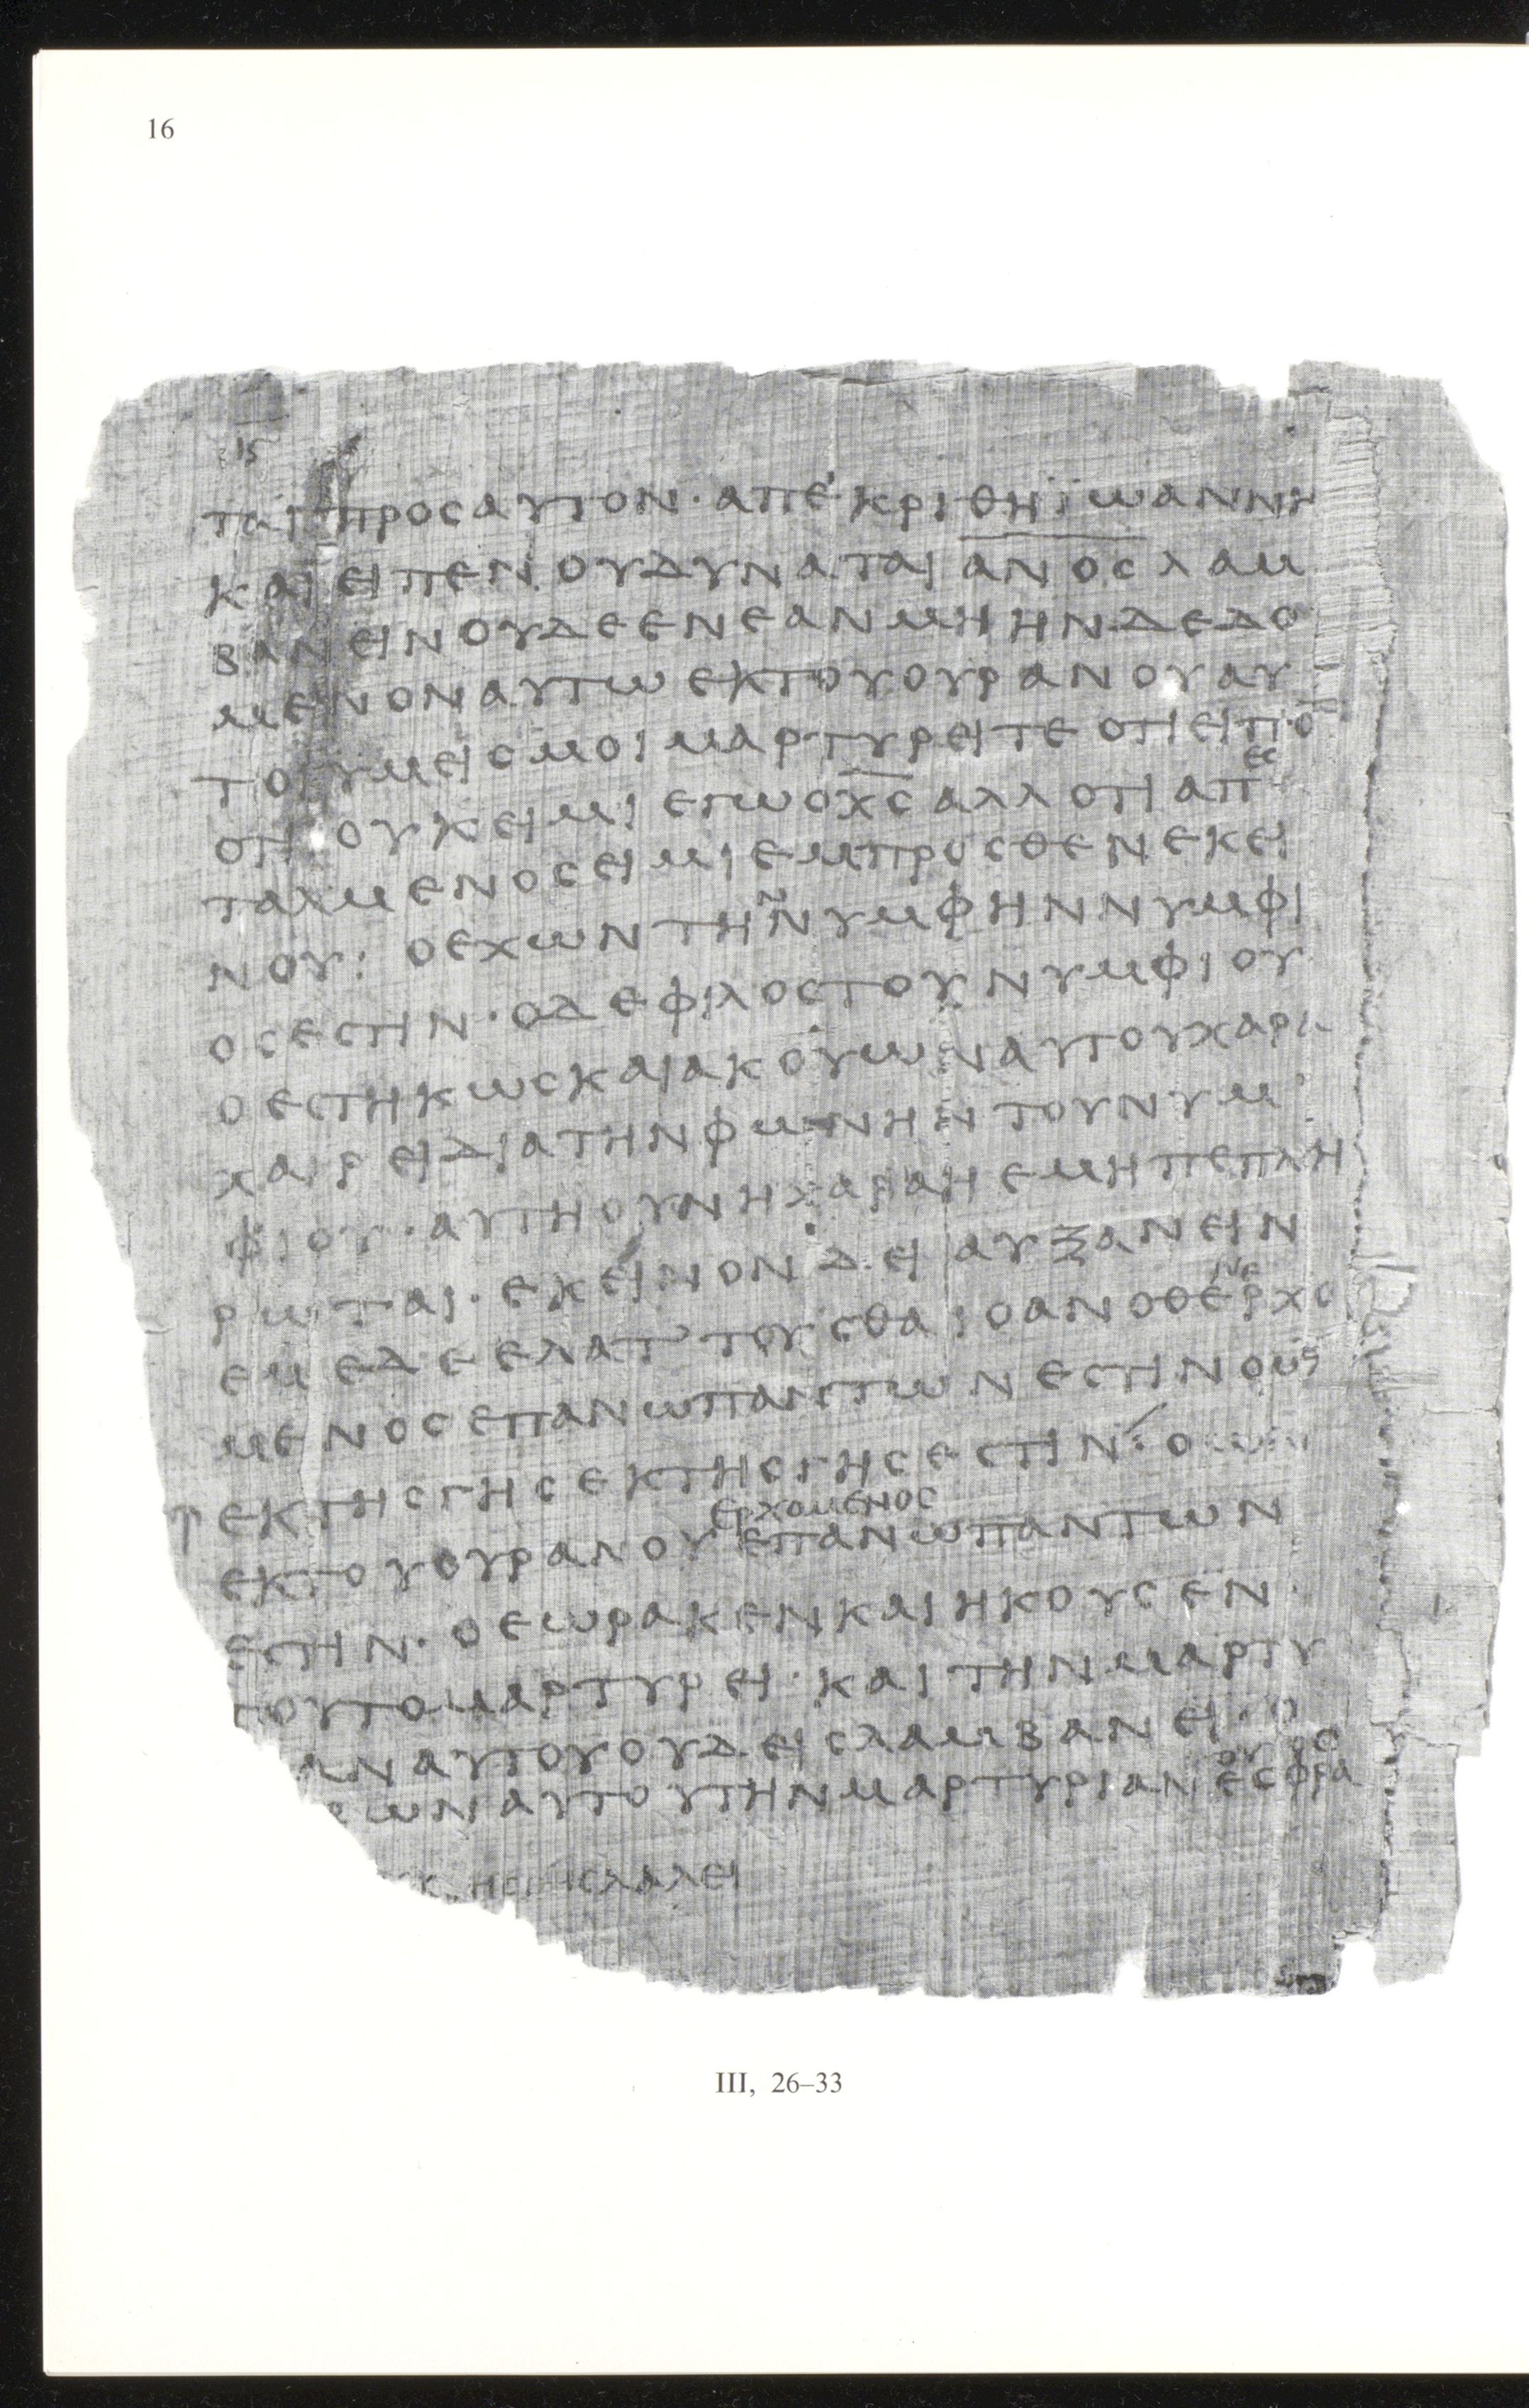 16
ιϛ
ται προσ αυτον · απεκριθη ϊωαννη
και ειπεν ου δυναται α̅ν̅ο̅ς̅ λαμ
βανειν ουδε εν εαν μη ην δεδο
μενον αυτω εκ του ουρανου αυ
τοι υμεις μοι μαρτυρειτε οτι ειπο
οτι ουκ ειμι εγω ο χ̅ς̅ αλλ οτι απ
εσ
ταλμενος ειμι εμπροσθεν εκει
νου : ο εχων την νυμφην νυμφι
ος εστιν · ο δε φιλος του νυμφιου
ο εστηκως και ακουων αυτου χαρα
χαιρει δια την φωνην του νυμ
φιου · αυτη ουν η χαρα η εμη πεπλη
ρωται · εκεινον δει αυξανειν
εμε δε ελαττουσθαι ο ανοθεερχο
ν
μενος επανω παντων εστιν ο ων
εκ της γης εκ της γης εστιν : ο ων
ερχομενος
εκ του ουρανου επανω παντων
εστιν · ο εωρακεν και ηκουσεν ·
τουτο μαρτυρει · και την μαρτυ
αν αυτου ουδεις λαμβανει · ο
ων αυτου την μαρτυριαν εσφρα
λαλει
III, 26–33